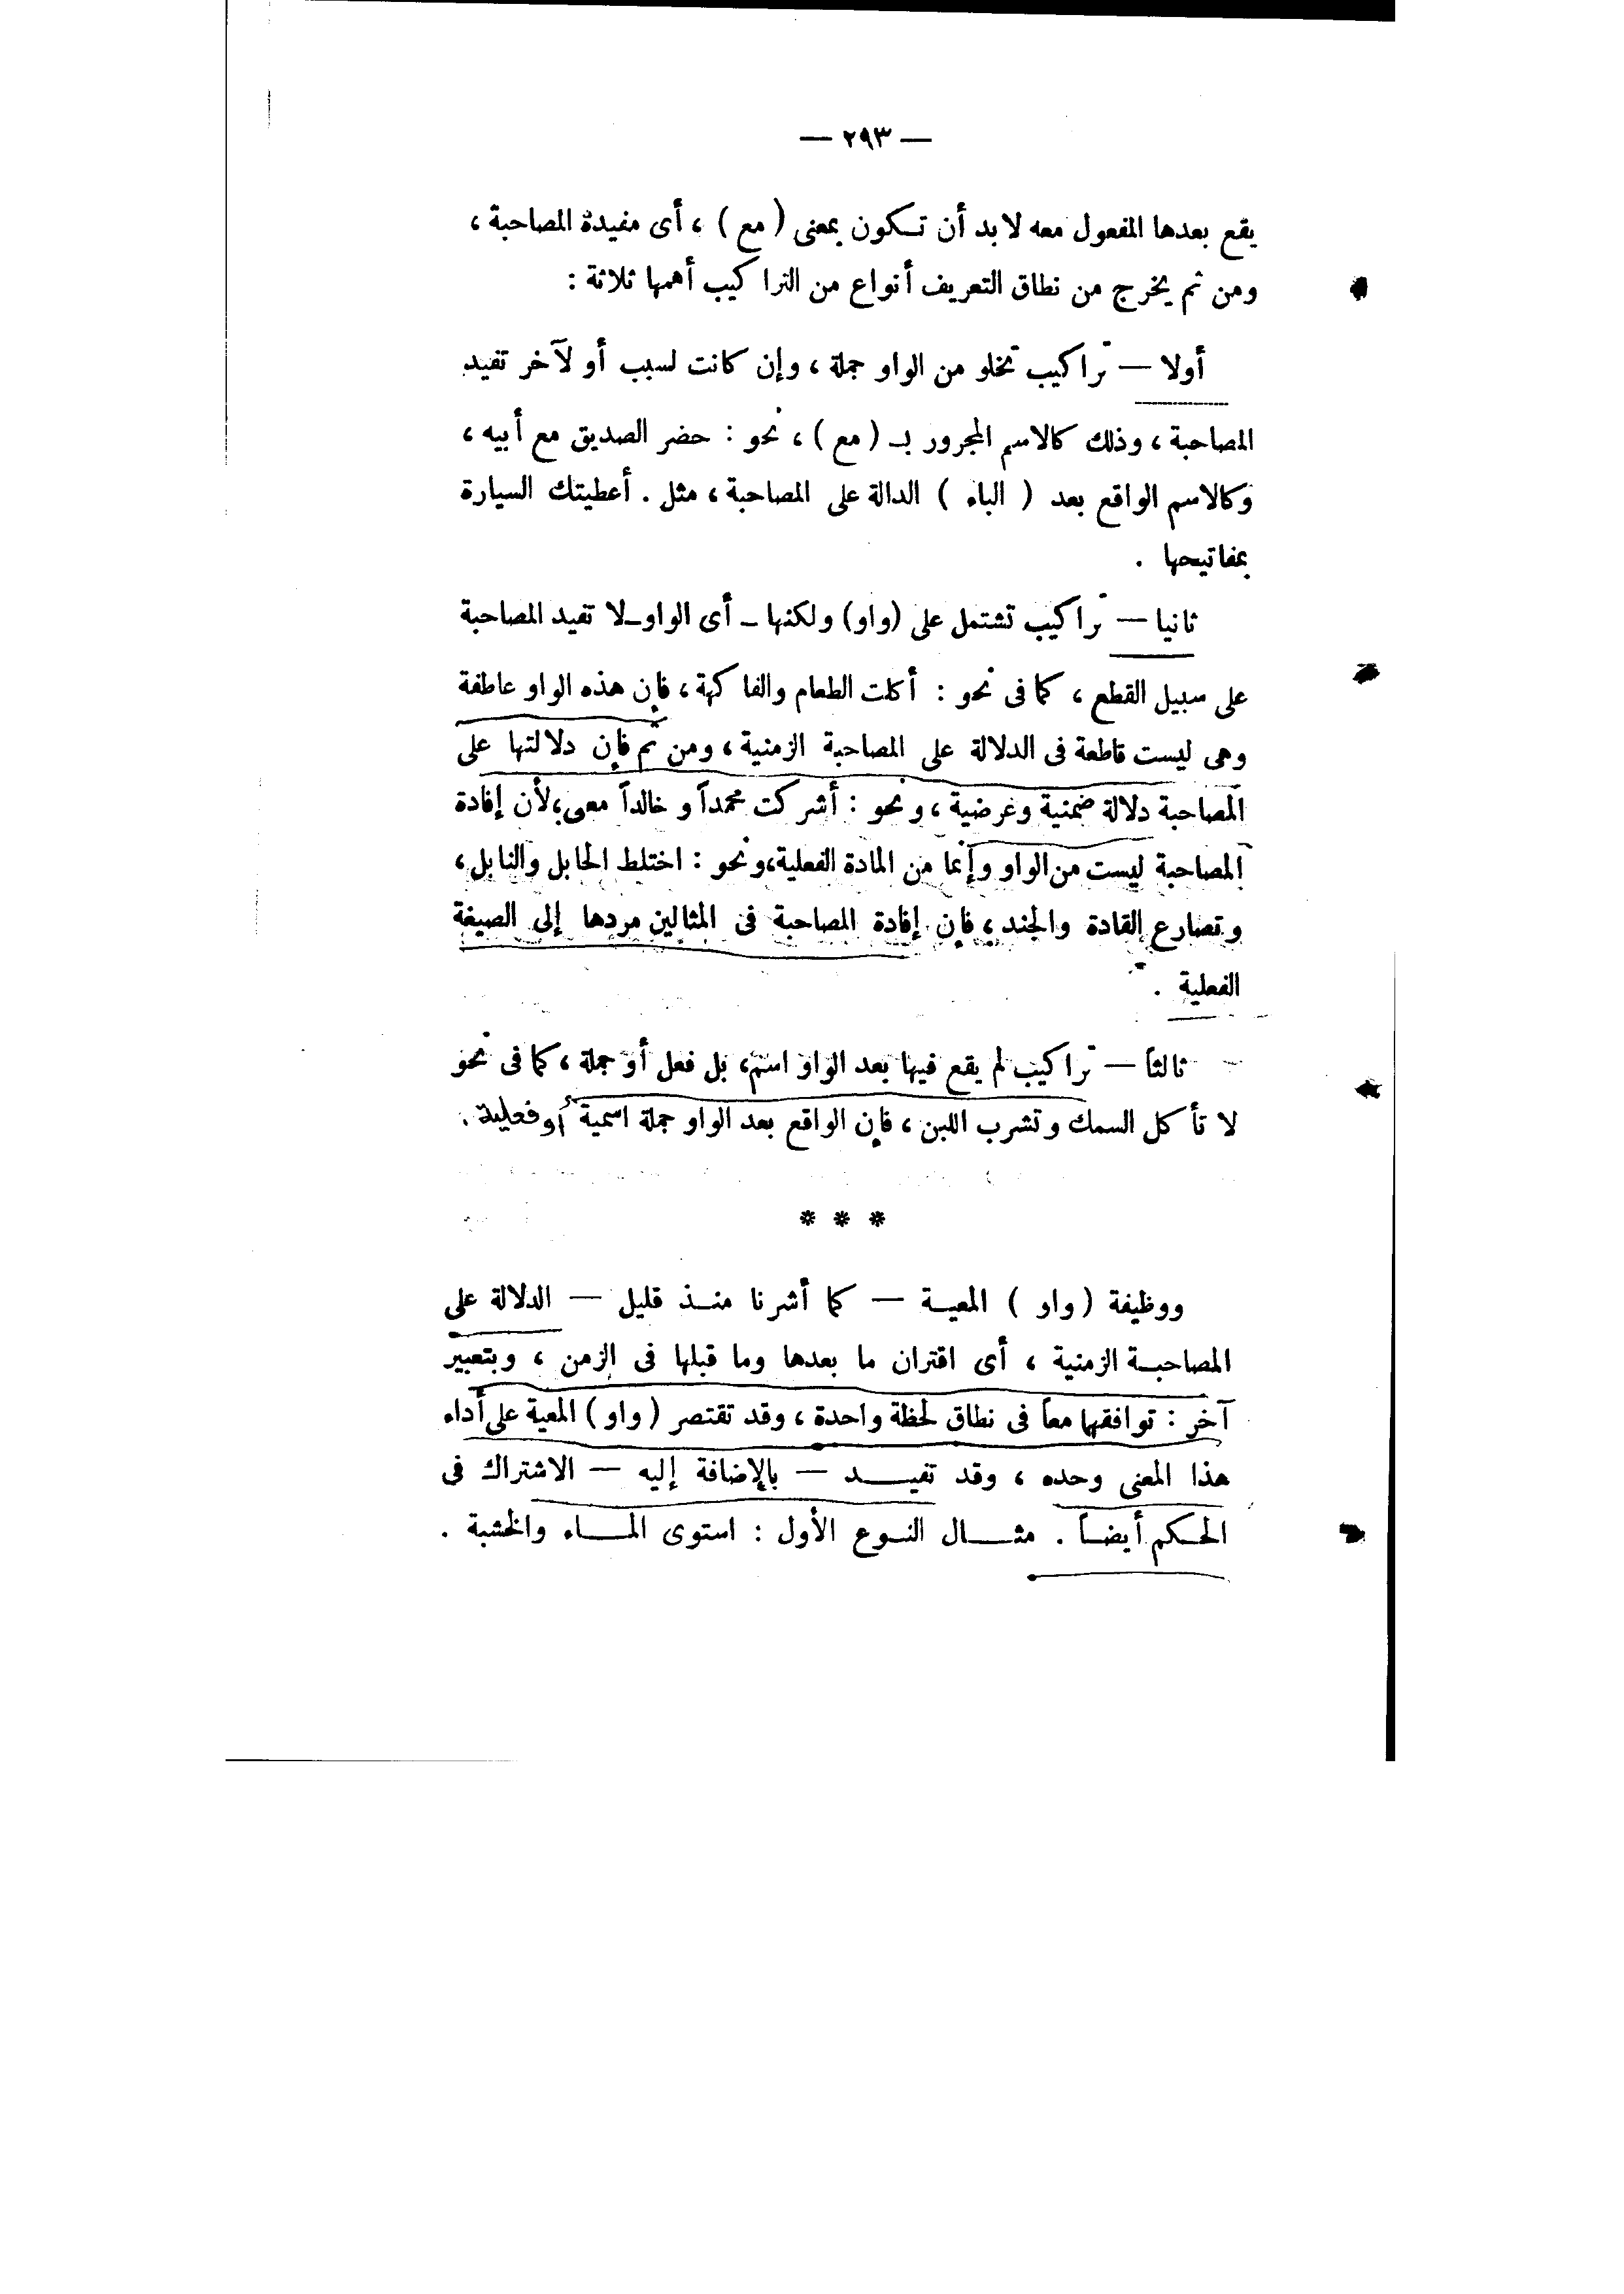 — ٢٩٣ —
يقع بعدها المفعول معه لا بد أن تكون بمعنى ( مع ) ، أى مفيدة المصاحبة ،
ومن ثم يخرج من نطاق التعريف أنواع من التراكيب أهمها ثلاثة :
أولا — تراكيب تخلو من الواو جملة ، وإن كانت لسبب أو لآخر تفيد
المصاحبة ، وذلك كالاسم المجرور بـ ( مع ) ، نحو : حضر الصديق مع أبيه ،
وكالاسم الواقع بعد ( الباء ) الدالة على المصاحبة ، مثل . أعطيتك السيارة
بمفاتيحها .
ثانيا — تراكيب تشتمل على (واو) ولكنها ـ أى الواو ـ لا تفيد المصاحبة
على سبيل القطع ، كما فى نحو : أكلت الطعام والفاكهة ، فإن هذه الواو عاطفة
وهى ليست قاطعة فى الدلالة على المصاحبة الزمنية ، ومن ثم فإن دلالتها على
المصاحبة دلالة ضمنية وعرضية ، ونحو : أشركت محمداً وخالداً معى ؛ لأن إفادة
المصاحبة ليست من الواو وإنما من المادة الفعلية ، ونحو : اختلط الحابل والنابل ،
وتصارع القادة والجند ، فإن إفادة المصاحبة فى المثالين مردها إلى الصيغة
الفعلية .
ثالثاً — تراكيب لم يقع فيها بعد الواو اسم ، بل فعل أو جملة ، كما فى نحو
لا تأكل السمك وتشرب اللبن ، فإن الواقع بعد الواو جملة اسمية أو فعلية .
* * *
ووظيفة ( واو ) المعيـة — كما أشرنا منـذ قليل — الدلالة على
المصاحبـة الزمنية ، أى اقتران ما بعدها وما قبلها فى الزمن ، وبتعبير
آخر : توافقها معاً فى نطاق لحظة واحدة ، وقد تقتصر ( واو ) المعية على أداء
هذا المعنى وحده ، وقد تفيـــد — بالإضافة إليه — الاشتراك فى
الحكم أيضـاً . مثـــال النـوع الأول : استوى المـــاء والخشبة .